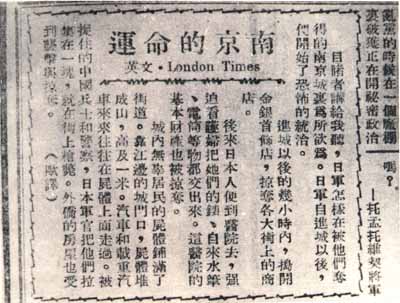 亂黨的時候在一個
裏破獲正在開秘密政治
嗎？
—托孟托維翅將軍
南京的命運
英文·London Times
目睹者講給我聽，日軍怎樣在被他們奪
得的南京城裏爲所欲爲。日軍自進城以後，
們開始了恐怖的統治。
進城以後的幾小時內，搗開
金銀首飾店，掠奪各大街上的商
店。
後來日本人便到醫院去，强
迫看護婦把她們的錶、自來水筆
、電筒等物都交出來。這醫院的
基本財產也被掠奪。
城內無辜居民的屍體舖滿了
街道。靠江邊的城門口，屍體堆
成山，高及一米。汽車和載重汽
車來來往往在屍體上面走過。被
捉住的中國兵士和警察，日本軍官把他們拉
集在一塊，就在街上槍斃。外僑的房屋也受
到襲擊與掠奪。（歐譯）